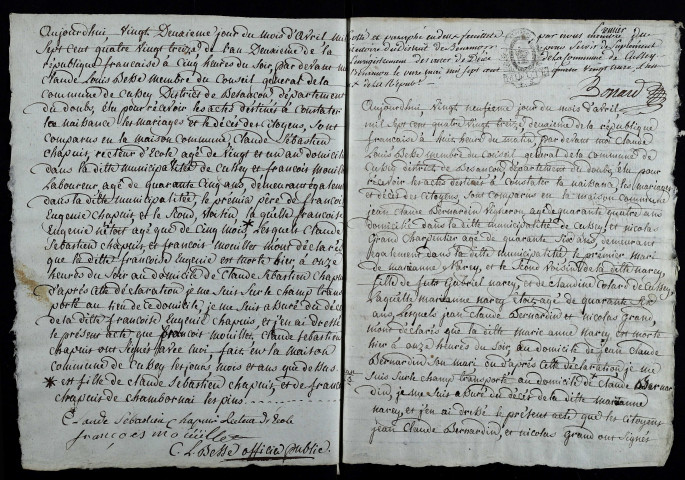 Aujourdhuy Vingt Deuxieme jour du mois d'avril mil
Sept cent quatre Vingt treize de l'an Deuxieme de la
république francaise à Cinq heures du Soir, par devant moi
Claude Louis Besse membre du Conseil general de la
commune de Cussey District de Besancon departement
du doubs, élu pour recevoir les actes destinés à Constater
les naissance, les mariages et le décès des Citoyens, sont
comparus en la maison commune, Claude Sébastien
Chapuis, recteur d'Ecole agé de Vingt et un an domicilié
dans la ditte municipalité de Cussey et francois mouillet
Laboureur, agé de quarante cinq ans, demeurant également
dans la ditte municipalité, le premier père de francoise
Eugenie Chapuis et le Second, Voisin, laquelle francoise
Eugenie n'etoit agé que de Cinq mois * Lesquels Claude
Sébastien Chapuis, et francois mouillet m'ont déclaré
que la ditte francoise Eugenie est morte hier à onze
heures du Soir au domicile de Claude Sebastien Chapuis
d'après cette déclaration je me suis Sur le champ trans
porté au lieu de ce domicile, je me suis assuré du décès
de la ditte francoise Eugenie Chapuis, et j'en ai dressé
le présent acte, que francois mouillet, Claude Sebastien
Chapuis ont Signés avec moi, fait en la maison
commune de Cussey les jours mois et ans que dessus
* est fille de Claude Sébastien Chapuis, et de francoise
Chapuis de Chambornai les pins
Claude Sébastien Chapuis Recteur d'Ecole
françois mouillet
C L Besse officier public
premier
cotté et paraphé en deux feuillets par nous
directoire du District de Besancon pour Servir de Suplement
l'enregistrement des actes de Décès de la commune de Cussey
à Besancon le onze mai mil sept cent quatre vingt treize l'an
2 de la Répub.
Bonard
Aujourdhuy, Vingt neufieme jour du mois d'avril,
mil Sept cent quatre Vingt treize, deuxieme de la république
francaise à huit heures du matin, par devant moi Claude
Louis Besse membre du Conseil general de la commune de
Cussey district de Besancon, département du doubs, élu pour
recevoir les actes destinés à Constater la naissance, les mariages
et décès des Citoyens, sont comparus en la maison commune
jean Claude Bernardin Vigneron agé de quarante quatre ans
domicilié dans la ditte municipalité de Cussey, et nicolas
Grand Charpentier agé de quarante six ans, demeurant
également dans la ditte municipalité, le premier mari
de marianne Narcy, et le Second Voisin de la ditte narcy
fille de fut Gabriel narcy, et de Claudine Colard de Cussey
laquelle marianne narcy étoit agé de quarante six
ans, lesquels jean Claude Bernardin et nicolas Grand,
m'ont déclarés que la ditte marie anne narcy est morte
hier à onze heures du Soir, au domicile de jean Claude
Bernardin Son mari ou d'après cette déclaration, je me
suis Sur le champ transporté au domicile de Claude Bernar
din, je me suis assuré du décès de la ditte marianne
narcy, et j'en ai dressé le présent acte que les citoyens
jean Claude Bernardin, et nicolas Grand ont Signés